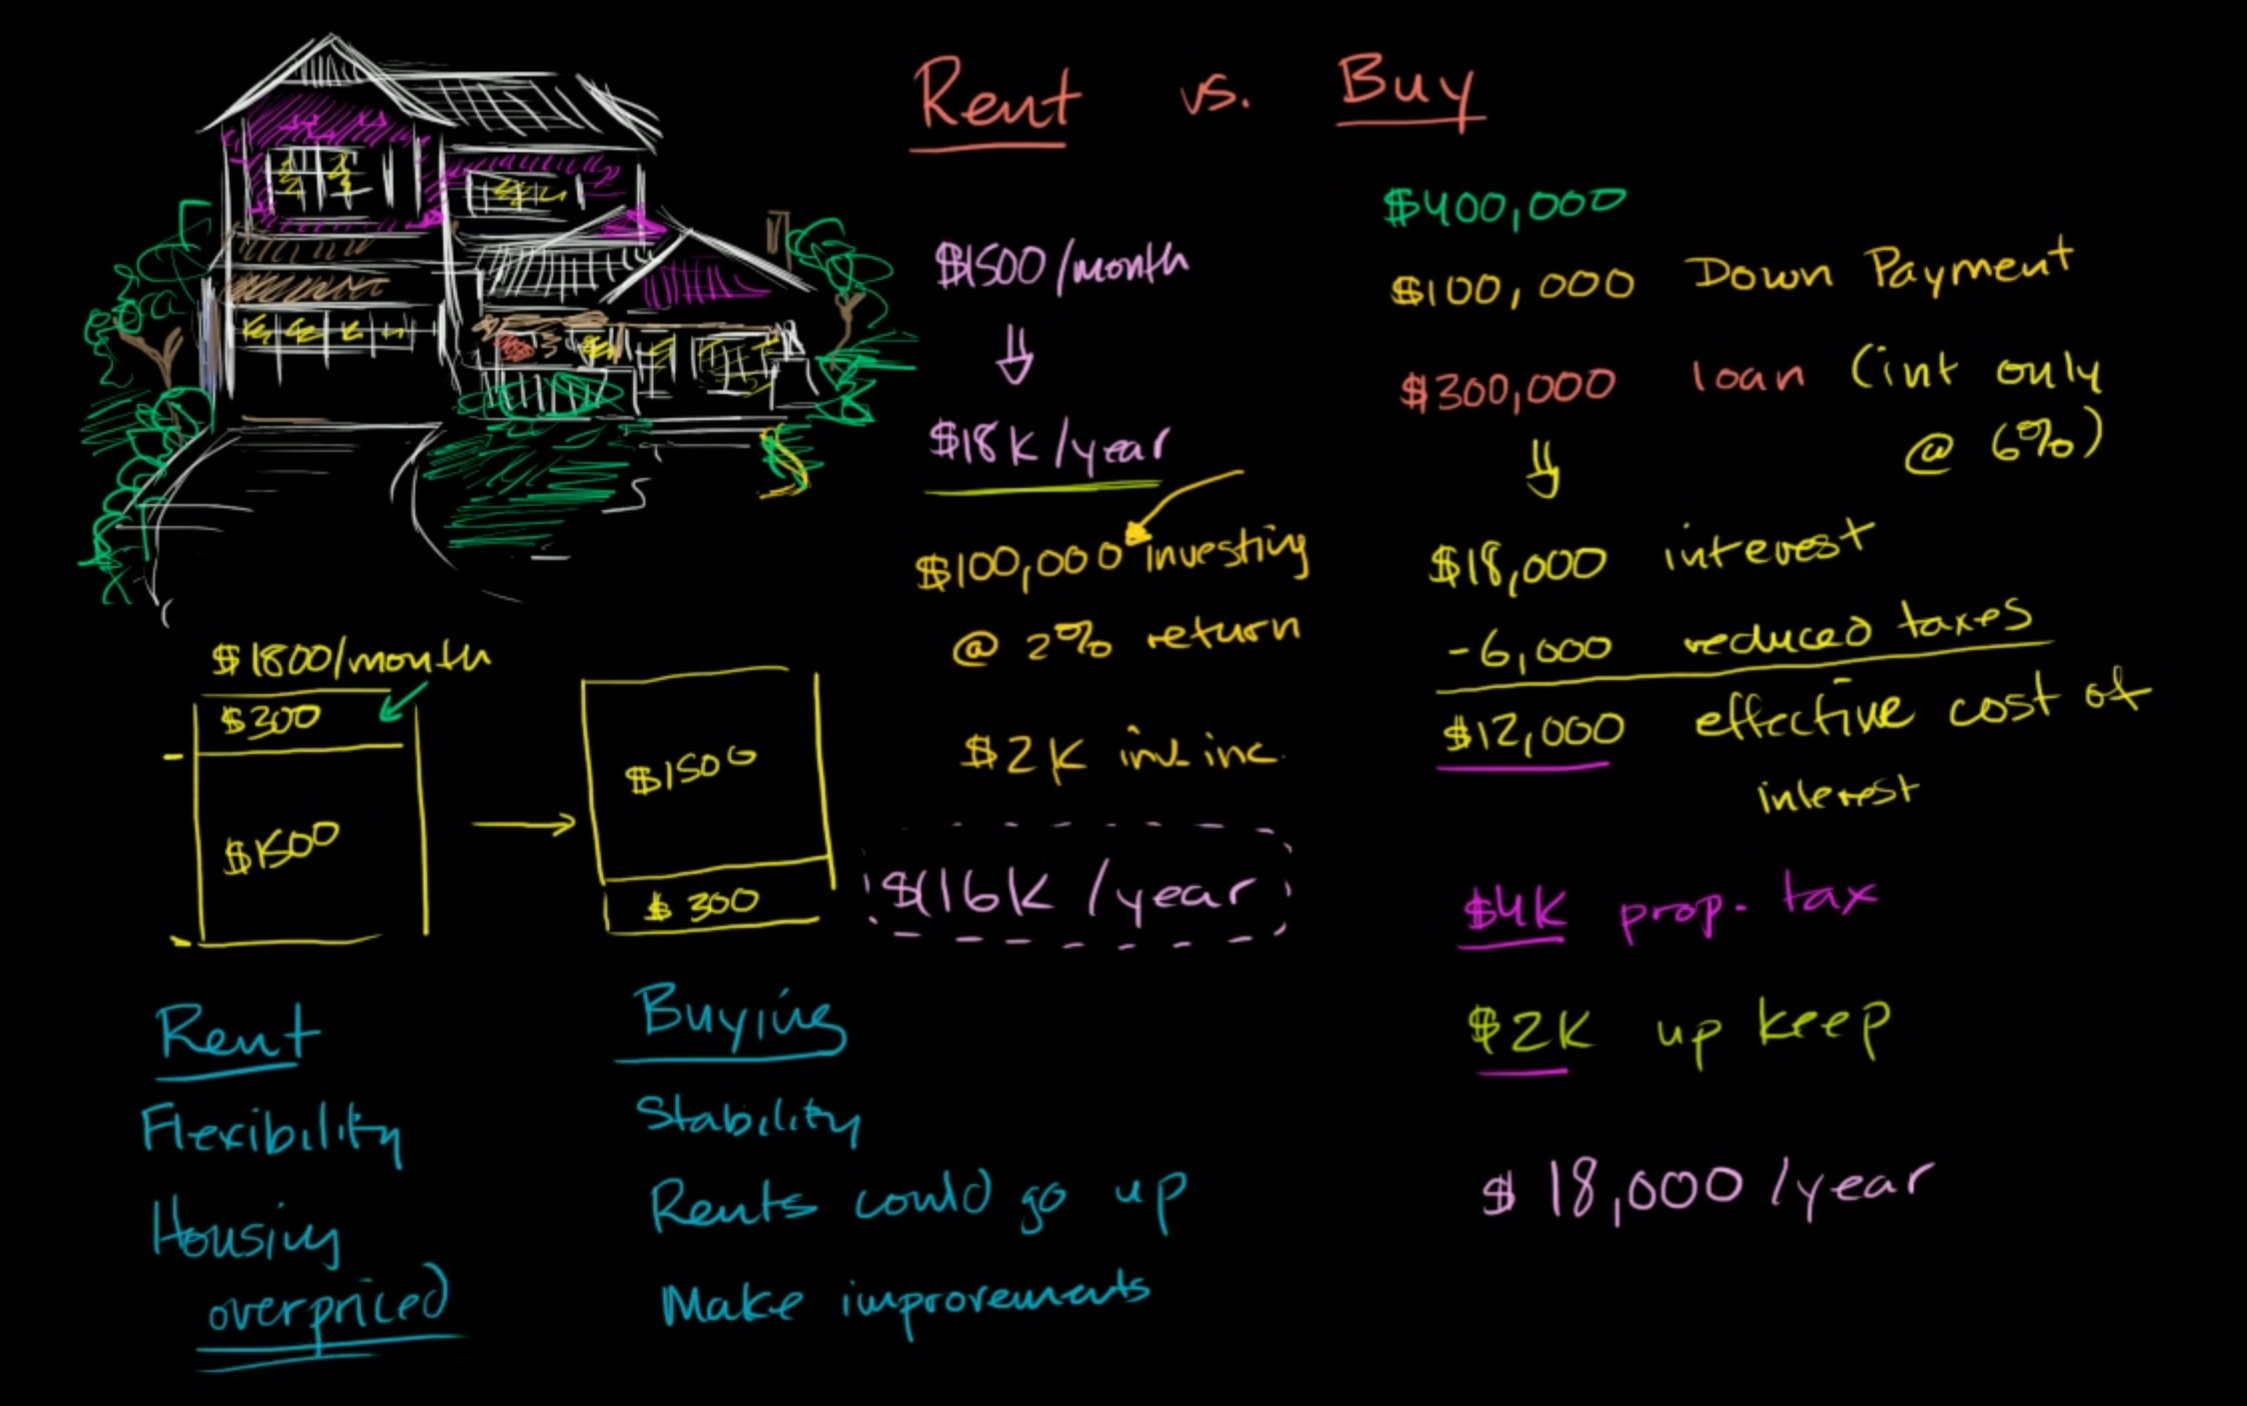 Rent vs. Buy
$1500/month
$18K/year
$100,000 investing
@ 2% return
$2K inv. inc.
$16K/year
$400,000
$100,000 Down Payment
$300,000 loan (int only
@ 6%)
$18,000 interest
-6,000 reduced taxes
$12,000 effective cost of
interest
$4K prop. tax
$2K up keep
$18,000/year
$1800/month
$300
$1500
$1500
$300
Rent
Flexibility
Housing
overpriced
Buying
Stability
Rents could go up
Make improvements